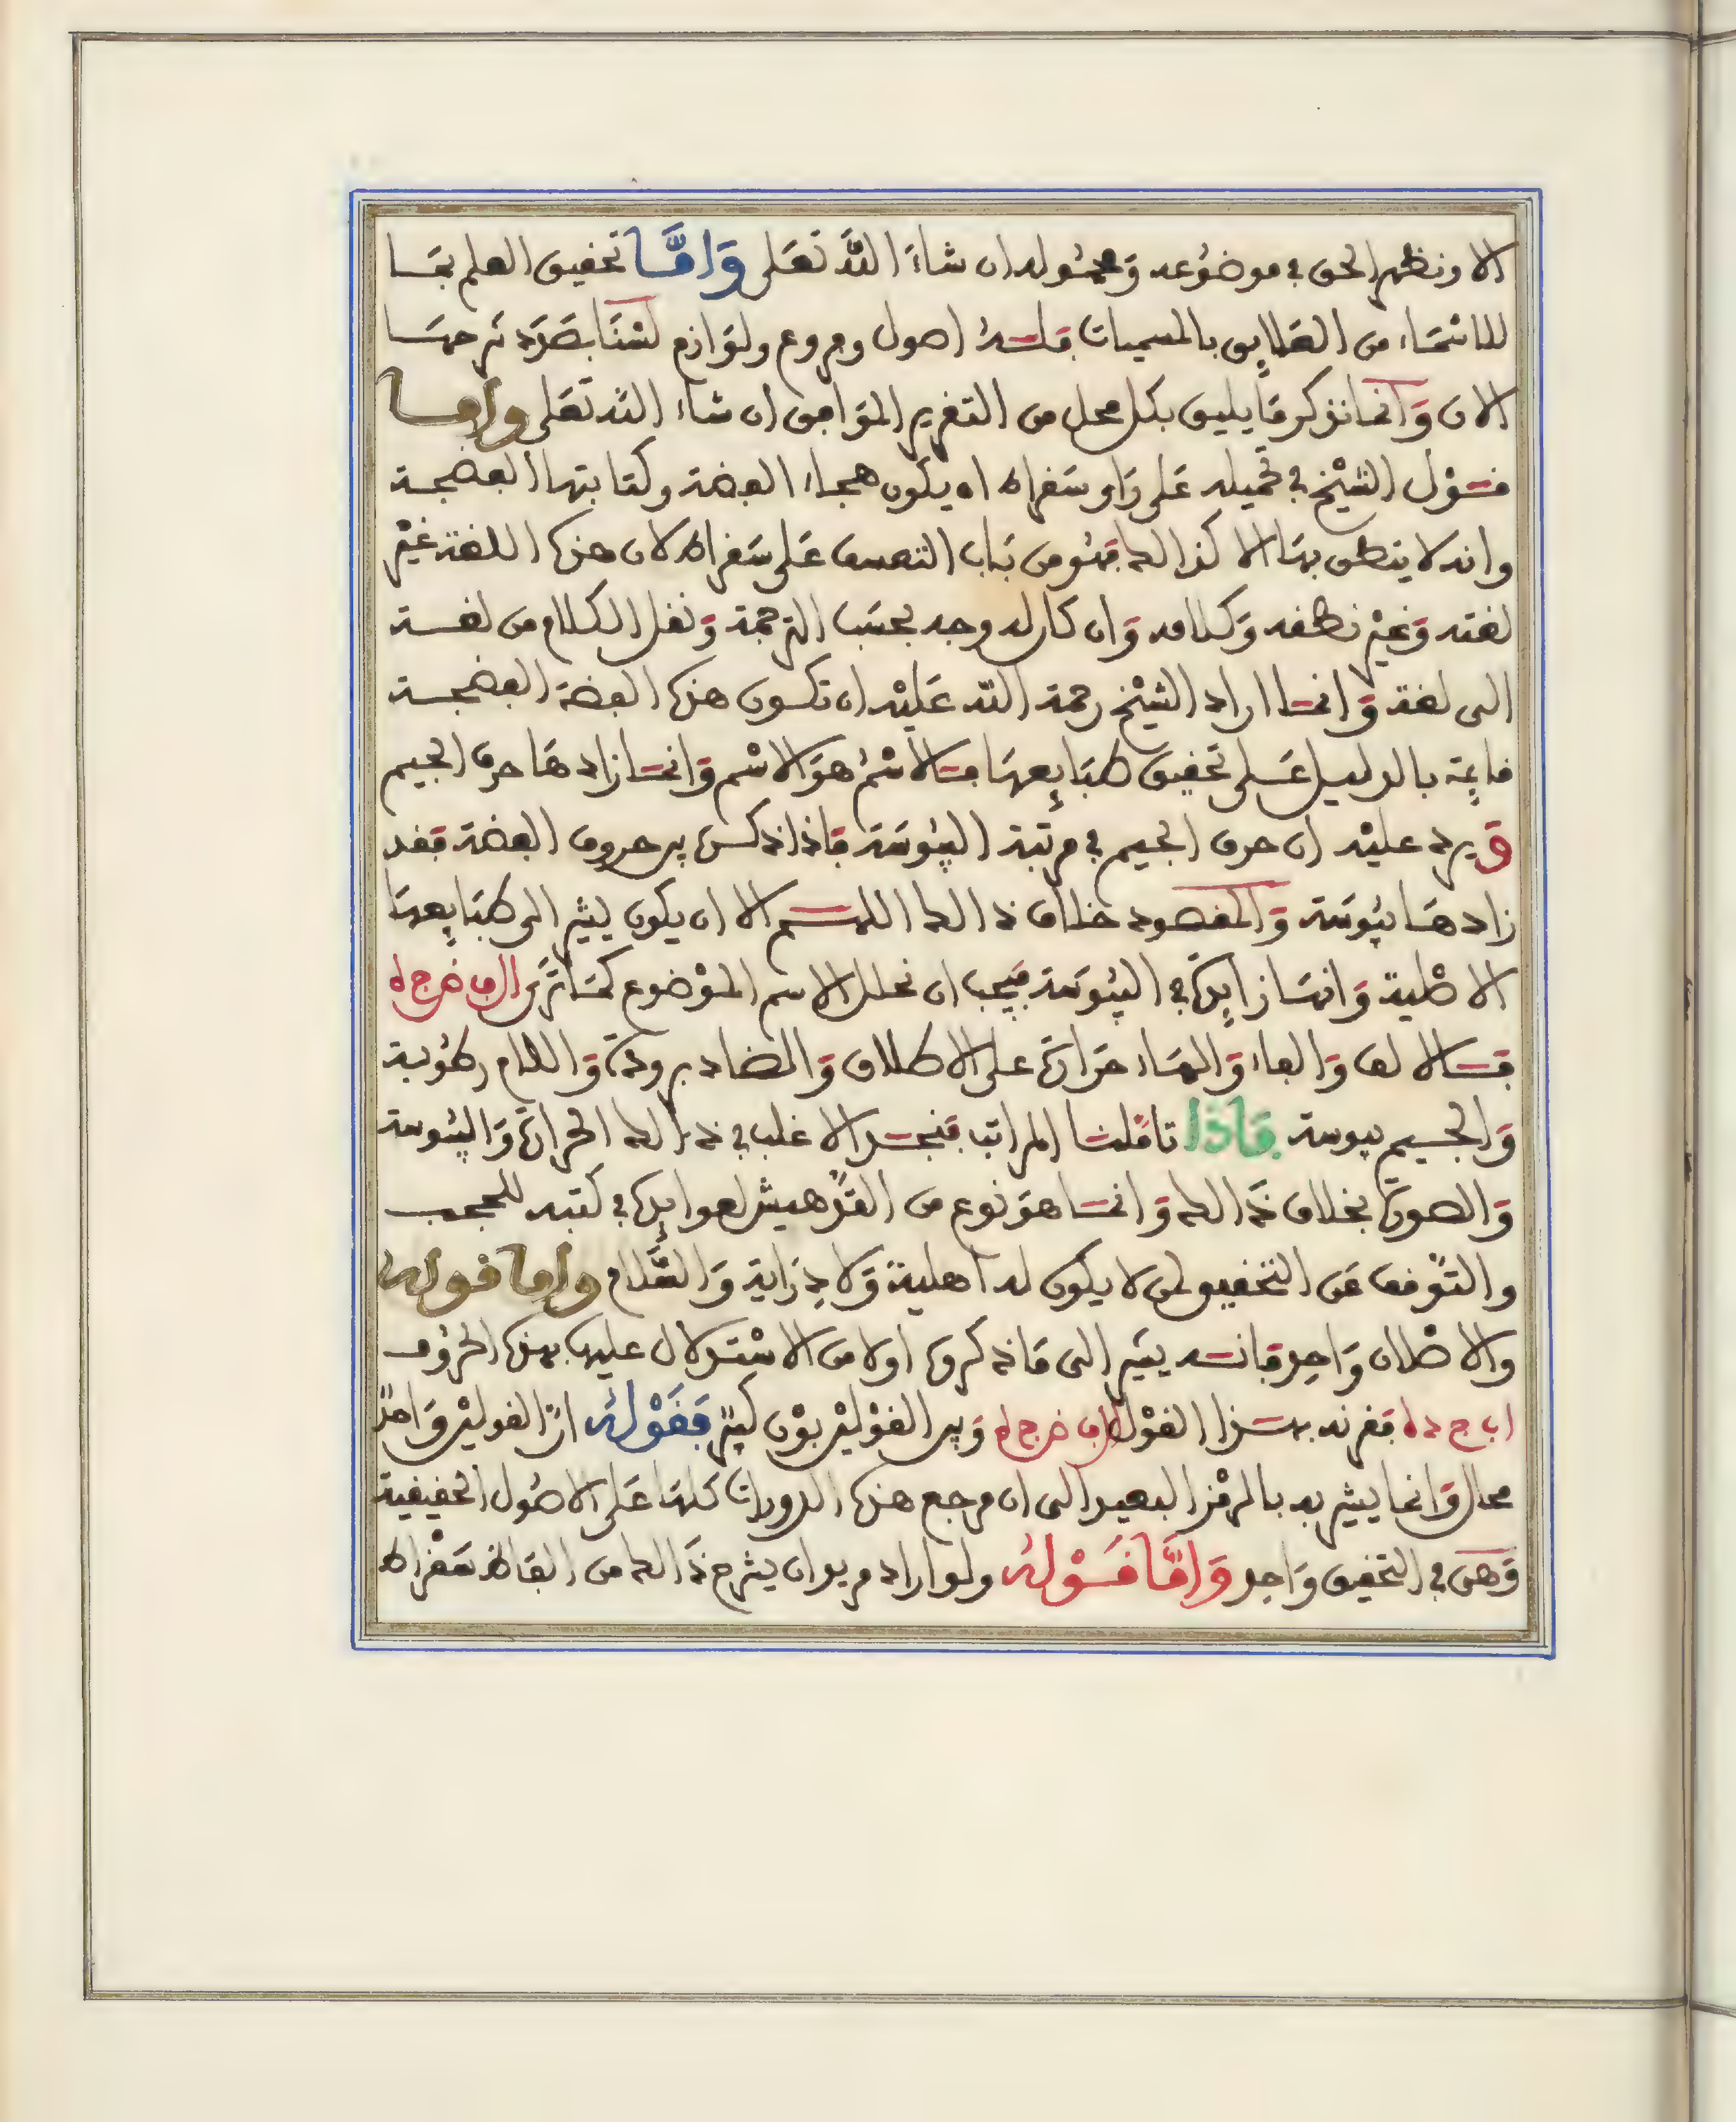 الا ونظهر الحق في موضوعه ومحموله ان شاءَ اللهُ تعَلى وَامَّا تحقيق العلم بمَا
للاسْمَاء من العَلايِق بالمسميات فلـه اصول وفروع ولوَازم لسْنَا بصَدَد شرحهَا
الان وَانما نذكر مَا يليق بكل محل من التقرير الموَافق ان شاء الله تعَلى وامـا
قـوْل الشيْخ في تحميله عَلى رَاي سَقراط ان يكون هجاء الفضة وكتابتها الفضجـة
وانه لا ينطق بهَا الا كذالك فهُو من بَاب التعسف عَلى سَقراط لان هذه اللغة غيْر
لغته وَغيْر نطقه وَكلامه وَان كان له وجه بحسَب الترجمة وَنقل الكلام من لغـة
الى لغة وَانمـا اراد الشيْخ رحمة الله عَليْه ان تكـون هذه الفضة الفضجـة
قايِمة بالدليـل عَـلى تحقيق طبَايِعهَا فـالاسْمُ هوَ الاسْم وَانمـا زاد هَا حرف الجيم
وَيرد عليْه ان حرف الجيم في مرتبة اليبُوسَة فاذا ذكـره بين حروف الفضة فقد
زاد هَا يبُوسَة وَالمقصود خلاف ذالك اللهـم الا ان يكون يشير الى طبَايِعهَا
الاصْلية وَانهَا زايِدة في اليبُوسَة فيَجب ان نحلل الاسم الموْضوع كمَا ترَى ال ف ض ج ه
فـالالف وَالفاء وَالهَاء حَرَارَة على الاطلاق وَالضاد برودة وَاللام رطُوبة
وَالجـيم يبوسة فَاذَا تامَّلنـا المراتب فنجـد الاغلب في ذَالك الحرارَة وَاليبُوسة
وَالصورَة بخلاف ذَالك وَانمـا هوَ نوع من التدْهيش لعوايِده في كتبه للحجـب
والتوَّقف عَن التحقيق لمن لا يكون له اهلية وَلا دِرَاية وَالسَّلام وامـا قـولـه
والاصْلان وَاحِد فانـه يشير الى مَا ذكره اولا من الاسْتـدلال عليه بهذه الحرُوف
ا ب ج د ه فقرنه بهـذا القوْل ال ف ض ج ه وَبين القوْليْن بوْن كبيْر فقَوْلهُ انَّ القوليْن وَاحدٌ
محال وَانما يشير به بالرمْز البعيد الى ان مرجع هذه الدورات كلهَا عَلى الاصُول الحقيقية
وَهىَ في التحقيق وَاحِد وَامَّا قَـوْلهُ ولو اراد مريد ان يشرح ذَالك من الفَاظ سَقْراط